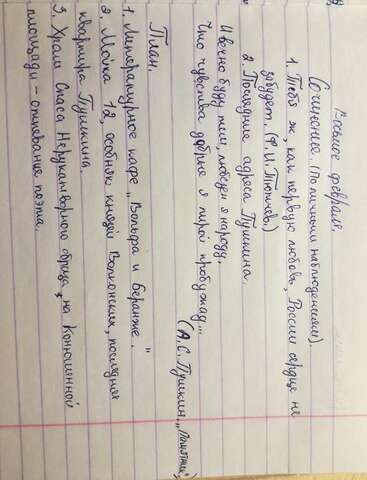 Восьмое февраля.
Сочинение. (По личным наблюдениям).
1. Тебя ж, как первую любовь, России сердце не
забудет. (Ф. И. Тютчев)
2 Последние адреса Пушкина.
И вечно буду тем любезен я народу,
Что чувства добрые я лирой пробуждал...
(А.С. Пушкин. „Памятник“)
План.
1. Литературное кафе „Вольфа и Беранже“.
2. Мойка 12, особняк князей Волконских, последняя
квартира Пушкина.
3. Храм Спаса Нерукотворного образа на Конюшенной
площади - отпевание поэта.